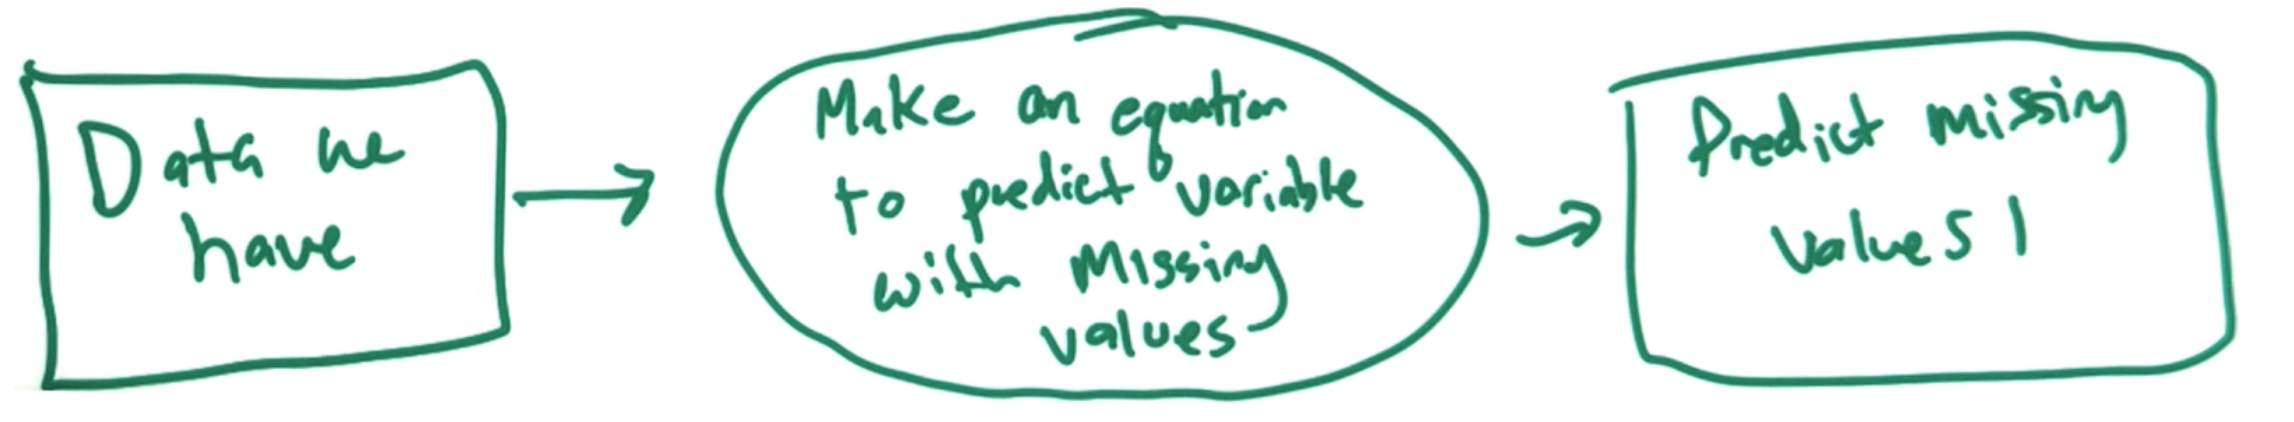 Data we
have
Make an equation
to predict variable
with missing
values
Predict missing
values !